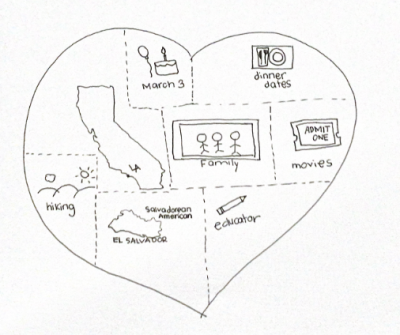 March 3
dinner
dates
ADMIT
ONE
LA
Family
movies
hiking
Salvadorean
American
EL SALVADOR
educator